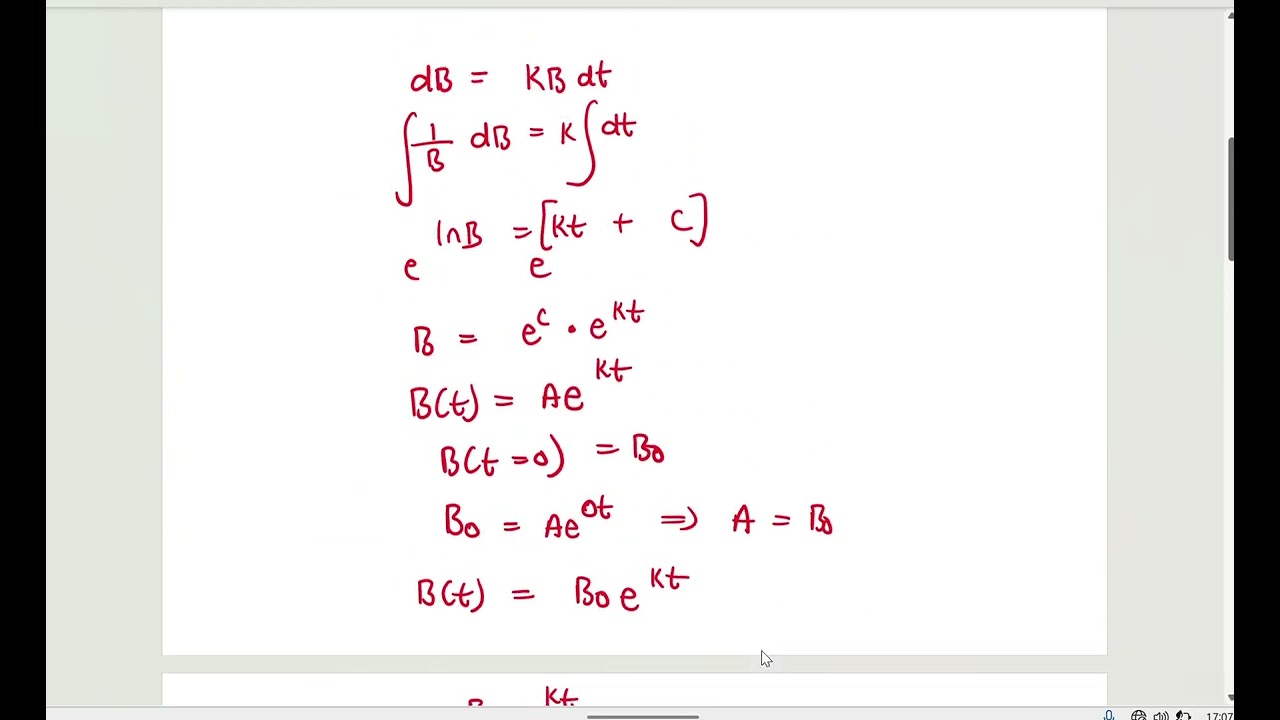 dB = KB dt
∫ 1/B dB = K ∫ dt
e^lnB = e^[Kt + C]
B = e^C · e^Kt
B(t) = Ae^Kt
B(t = 0) = B0
B0 = Ae^0t ⇒ A = B0
B(t) = B0 e^Kt
Kt
17:07